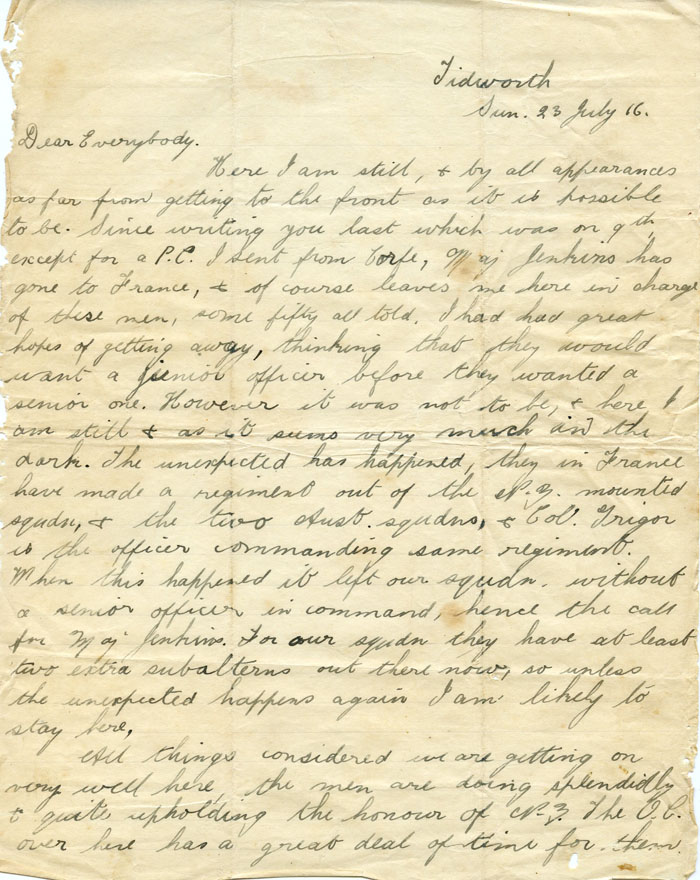 Tidworth
Sun. 23 July 16.
Dear Everybody.
Here I am still, & by all appearances
as far from getting to the front as it is possible
to be. Since writing you last which was on 9th,
except for a P.C. I sent from Corfe, Maj Jenkins has
gone to France, & of course leaves me here in charge
of these men, some fifty all told. I had had great
hopes of getting away, thinking that they would
want a junior officer before they wanted a
senior one. However it was not to be, & here I
am still & as it seems very much in the
dark. The unexpected has happened, they in France
have made a regiment out of the N.Z. mounted
squdn, & the two Aust. squdns, & Col. Grigor
is the officer commanding same regiment.
When this happened it left our squdn. without
a senior officer in command, hence the call
for Maj Jenkins. For our squdn they have at least
two extra subalterns out there now, so unless
the unexpected happens again I am likely to
stay here.
All things considered we are getting on
very well here, the men are doing splendidly
& quite upholding the honour of N.Z. The O.C.
over here has a great deal of time for them.